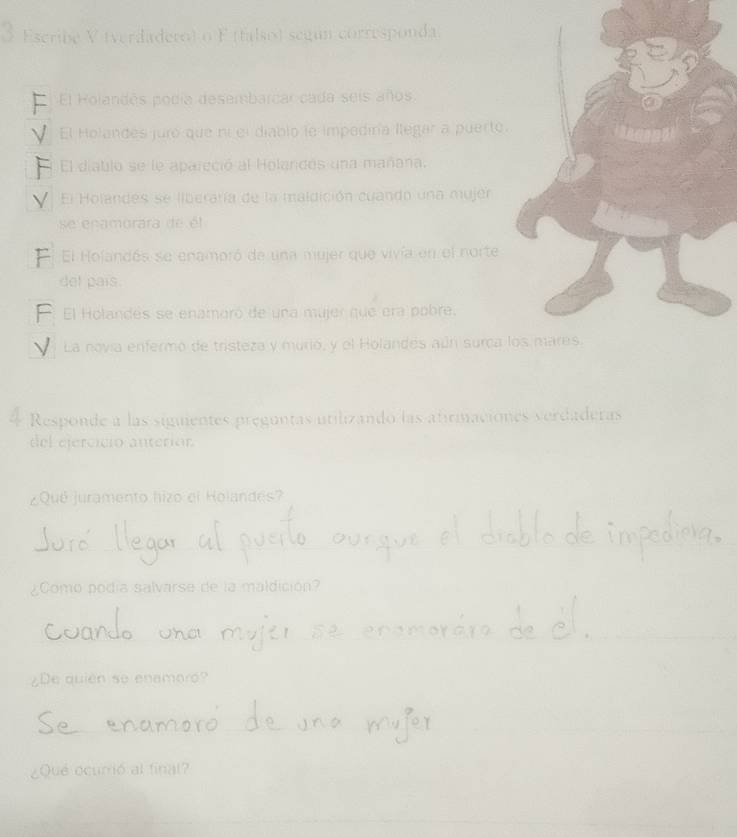 3 Escribe V (verdadero) o F (falso) según corresponda.
F El Holandés podía desembarcar cada seis años.
V El Holandés juró que ni el diablo le impediría llegar a puerto.
F El diablo se le apareció al Holandés una mañana.
V El Holandés se liberaría de la maldición cuando una mujer
se enamorara de él
F El Holandés se enamoró de una mujer que vivía en el norte
del país.
F El Holandés se enamoró de una mujer que era pobre.
V La novia enfermó de tristeza y murió, y el Holandés aún surca los mares.
4 Responde a las siguientes preguntas utilizando las afirmaciones verdaderas
del ejercicio anterior.
¿Qué juramento hizo el Holandés?
Juró llegar al puerto aunque el diablo de impediera.
¿Cómo podía salvarse de la maldición?
cuando una mujer se enamorára de él.
¿De quién se enamoró?
Se enamoró de una mujer
¿Qué ocurrió al final?